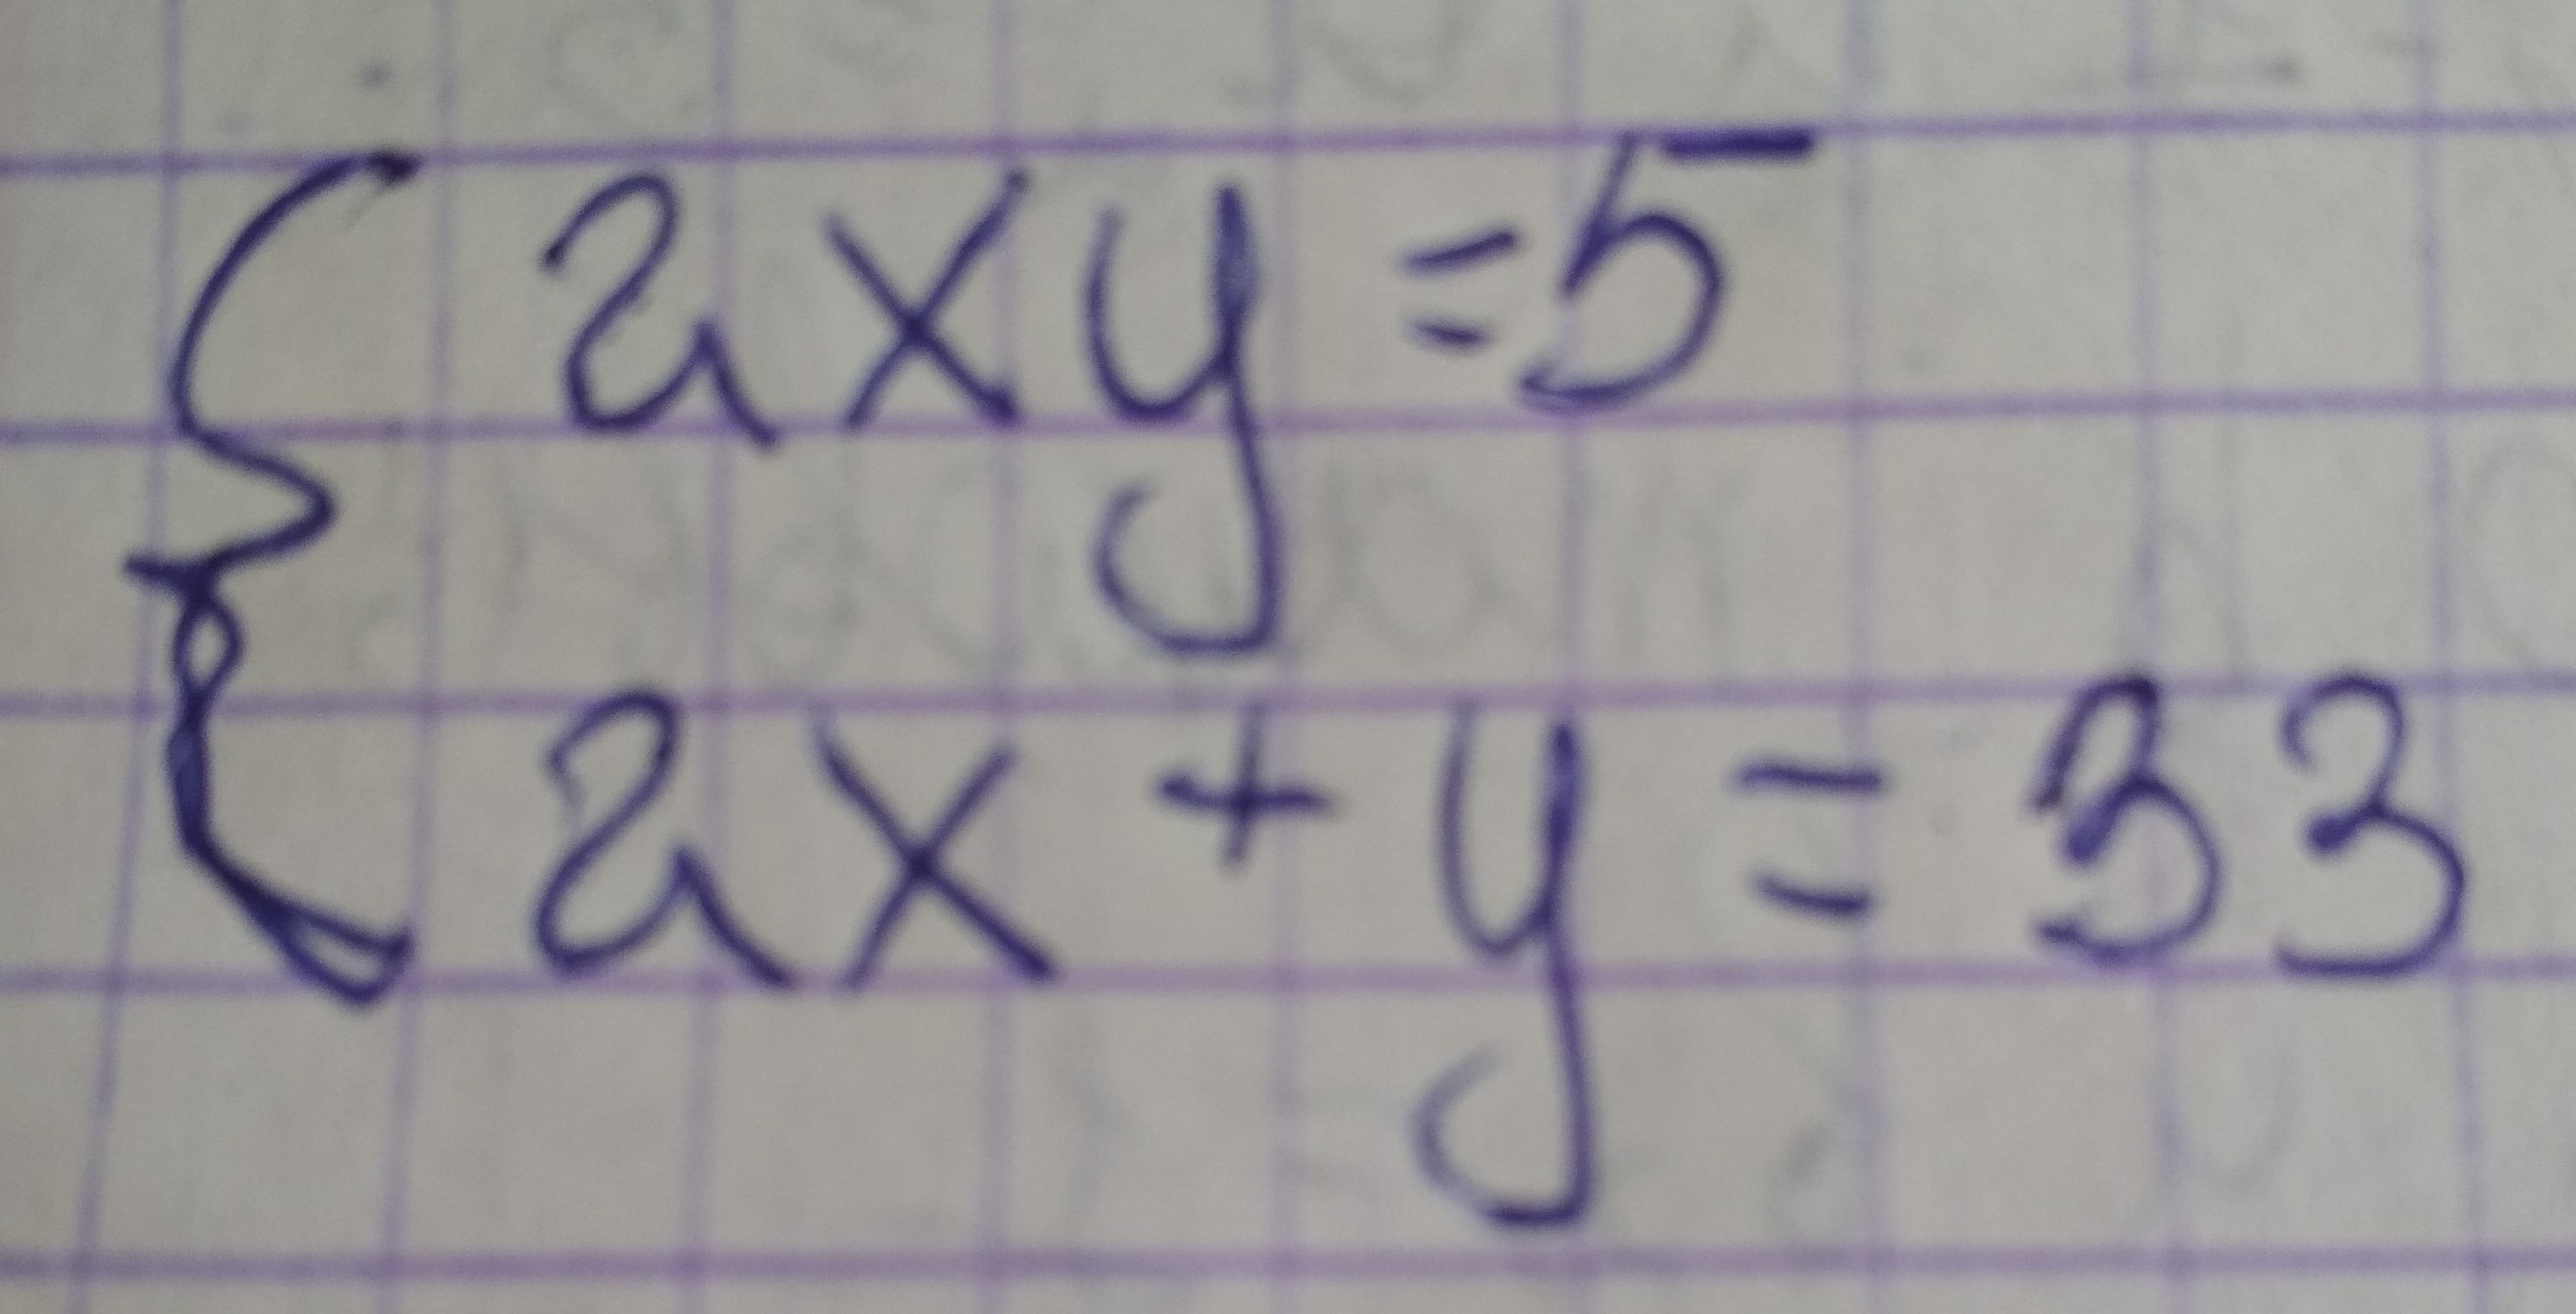 2xy=5
2x+y=33